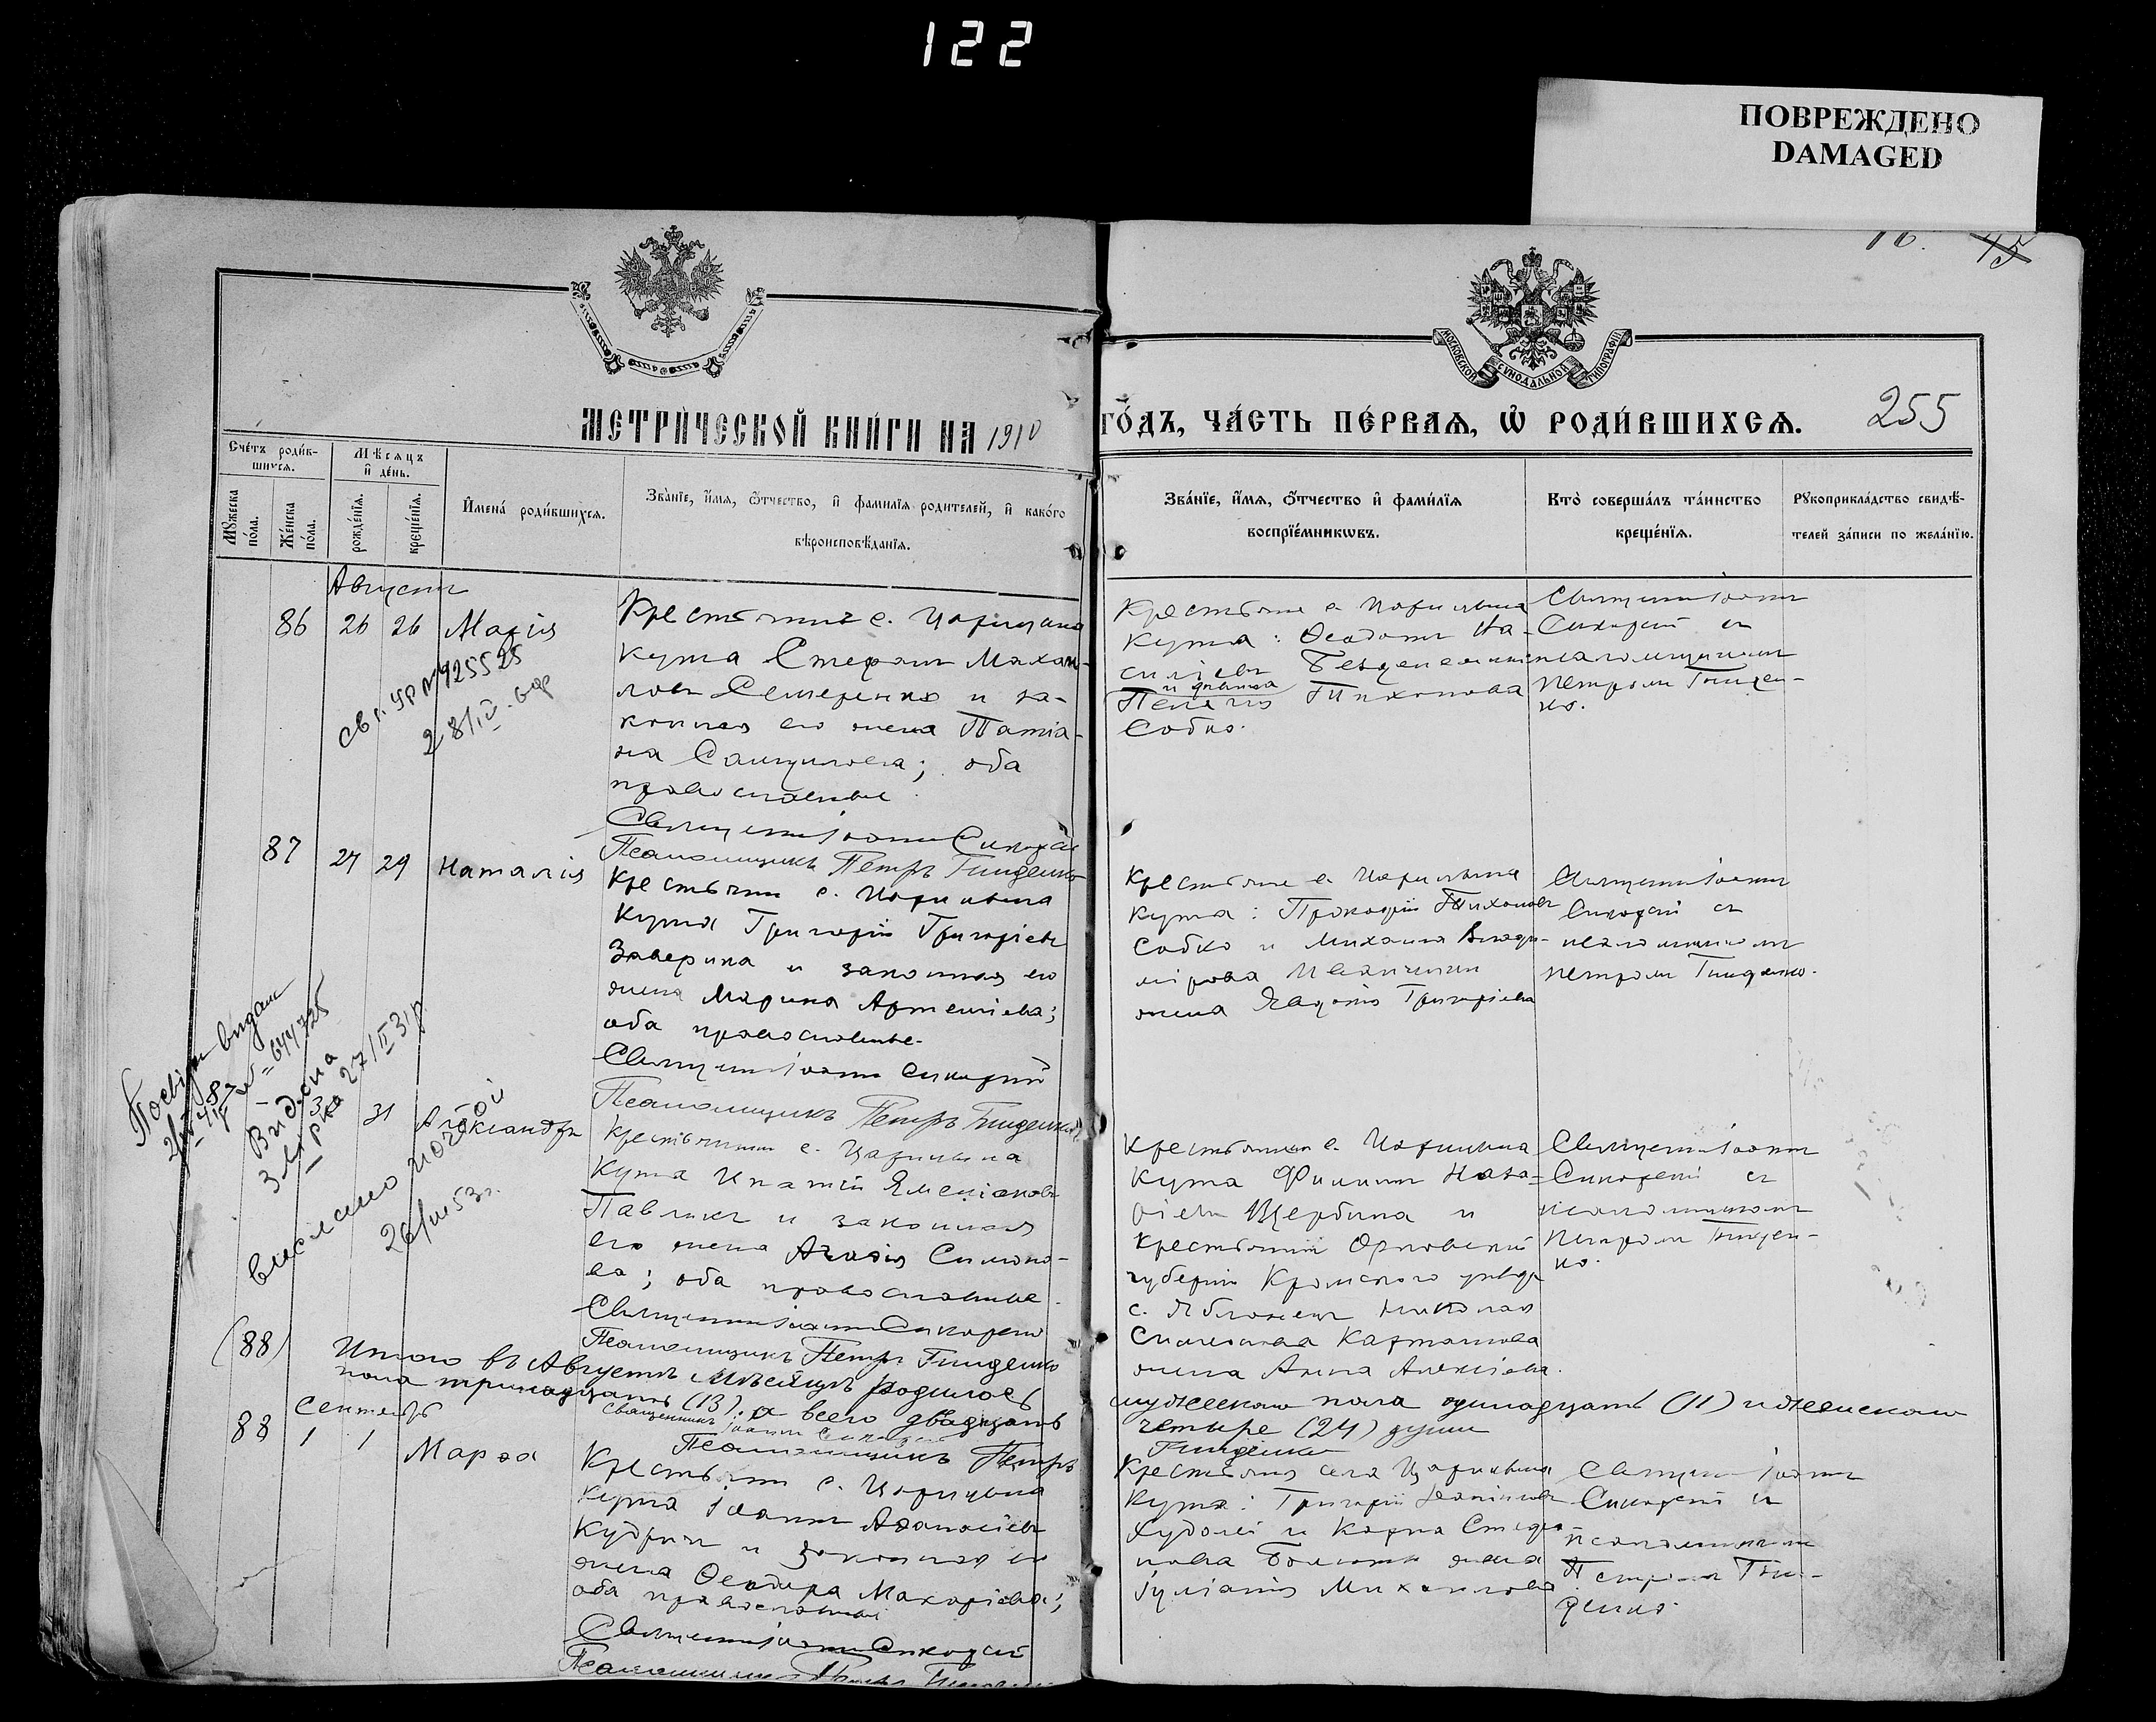 122
ПОВРЕЖДЕНО
DAMAGED
45
МОСКОВСКОЙ СѴНОДАЛЬНОЙ ТИПОГРАФІИ
МЕТРИ́ЧЕСКОЙ КНИ́ГИ НА 1910
ГО́ДЪ, ЧА́СТЬ ПЕ́РВАѦ, Ѡ҆ РОДИ́ВШИХСѦ.
255
Сче́тъ роди́в-
шихсѧ.
Мꙋ́жеска
по́ла.
Же́нска
по́ла.
Мѣ́сѧцъ
и҆ де́нь.
рожде́нїѧ.
креще́нїѧ.
И҆мена̀ роди́вшихсѧ.
Зва́нїе, и҆́мѧ, ѻ҆́тчество, и҆ фами́лїѧ роди́телей, и҆ како́гѡ
вѣроисповѣ́данїѧ.
Зва́нїе, и҆́мѧ, ѻ҆́тчество и҆ фами́лїѧ
воспрїе́мникѡвъ.
Кто̀ соверша́лъ та́инство
креще́нїѧ.
Рꙋкоприкла́дство свидѣ́-
телей за́писи по жела́нїю.
Августъ
86 26 26 Марія
Крестьянинъ с. Царицына
Кута Стефанъ Михаи-
ловъ Семеренко и за-
конная его жена Татіа-
на Самуилова; оба
православные
Священникъ Іоаннъ Сикорскій
Псаломщикъ Петръ Гниденко
Крестьяне с. Царицына
Кута: Ѳеодотъ Ва-
силіевъ
и дѣвица
Пелагія Тихонова
Собко.
Священникъ Іоаннъ
Сикорскій съ
псаломщикомъ
Петромъ Гниден-
ко.
87 27 29 Наталія
Крестьянинъ с. Царицына
Кута Григорій Григоріевъ
Заверуха и законная его
жена Марина Артеміева;
оба православные.
Священникъ Іоаннъ Сикорскій
Псаломщикъ Петръ Гниденко
Крестьяне с. Царицына
Кута: Прокофій Тихоновъ
Собко и Михаила Влади-
мірова
жена Григоріева
Священникъ Іоаннъ
Сикорскій съ
псаломщикомъ
Петромъ Гниденко.
31 Александръ
Крестьянинъ с. Царицына
Кута Ипатій Емеліановъ
Павликъ и законная
его жена Агафія Симоно-
ва; оба православные.
Священникъ Іоаннъ Сикорскій
Псаломщикъ Петръ Гниденко
Крестьянинъ с. Царицына
Кута Филиппъ Наза-
ріевъ Щербина и
крестьянина Орловской
губерніи Кромского уѣзда
с. Яблонецъ Николая
Симеонова Карташова
жена Анна Алексіева.
Священникъ Іоаннъ
Сикорскій съ
псаломщикомъ
Петромъ Гниден-
ко.
(88)
Итого въ Августѣ мѣсяцѣ родилось мужескаго пола одинадцать (11) и женскаго
пола тринадцать (13), а всего двадцать четыре (24) души
Священникъ Іоаннъ Сикорскій
Псаломщикъ Петръ Гниденко
Сентябрь
88 1 1 Марѳа
Крестьянинъ с. Царицына
Кута Іоаннъ Аѳанасіевъ
и законная его
жена Ѳеодора Макаріева;
оба православные
Священникъ Іоаннъ Сикорскій
Псаломщикъ Петръ
Крестьяне села Царицына
Кута: Григорій
Худолей и Карпа Стефа-
нова жена
Іуліанія Михаилова
Священникъ Іоаннъ
Сикорскій съ
псаломщикомъ
Петромъ Гни-
денко.